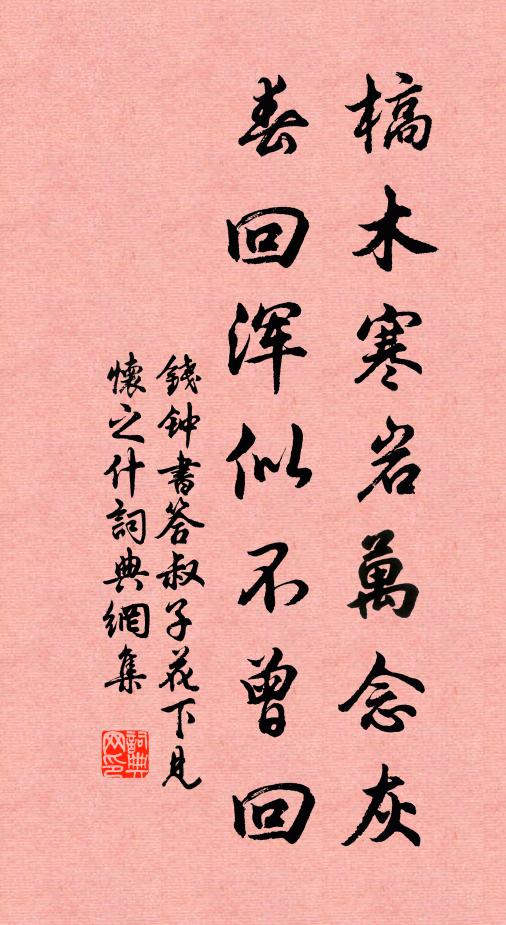 槁木寒岩萬念灰
春回浑似不曾回
錢钟書答叔子花下見
懷之什詞典網集
詞典網印